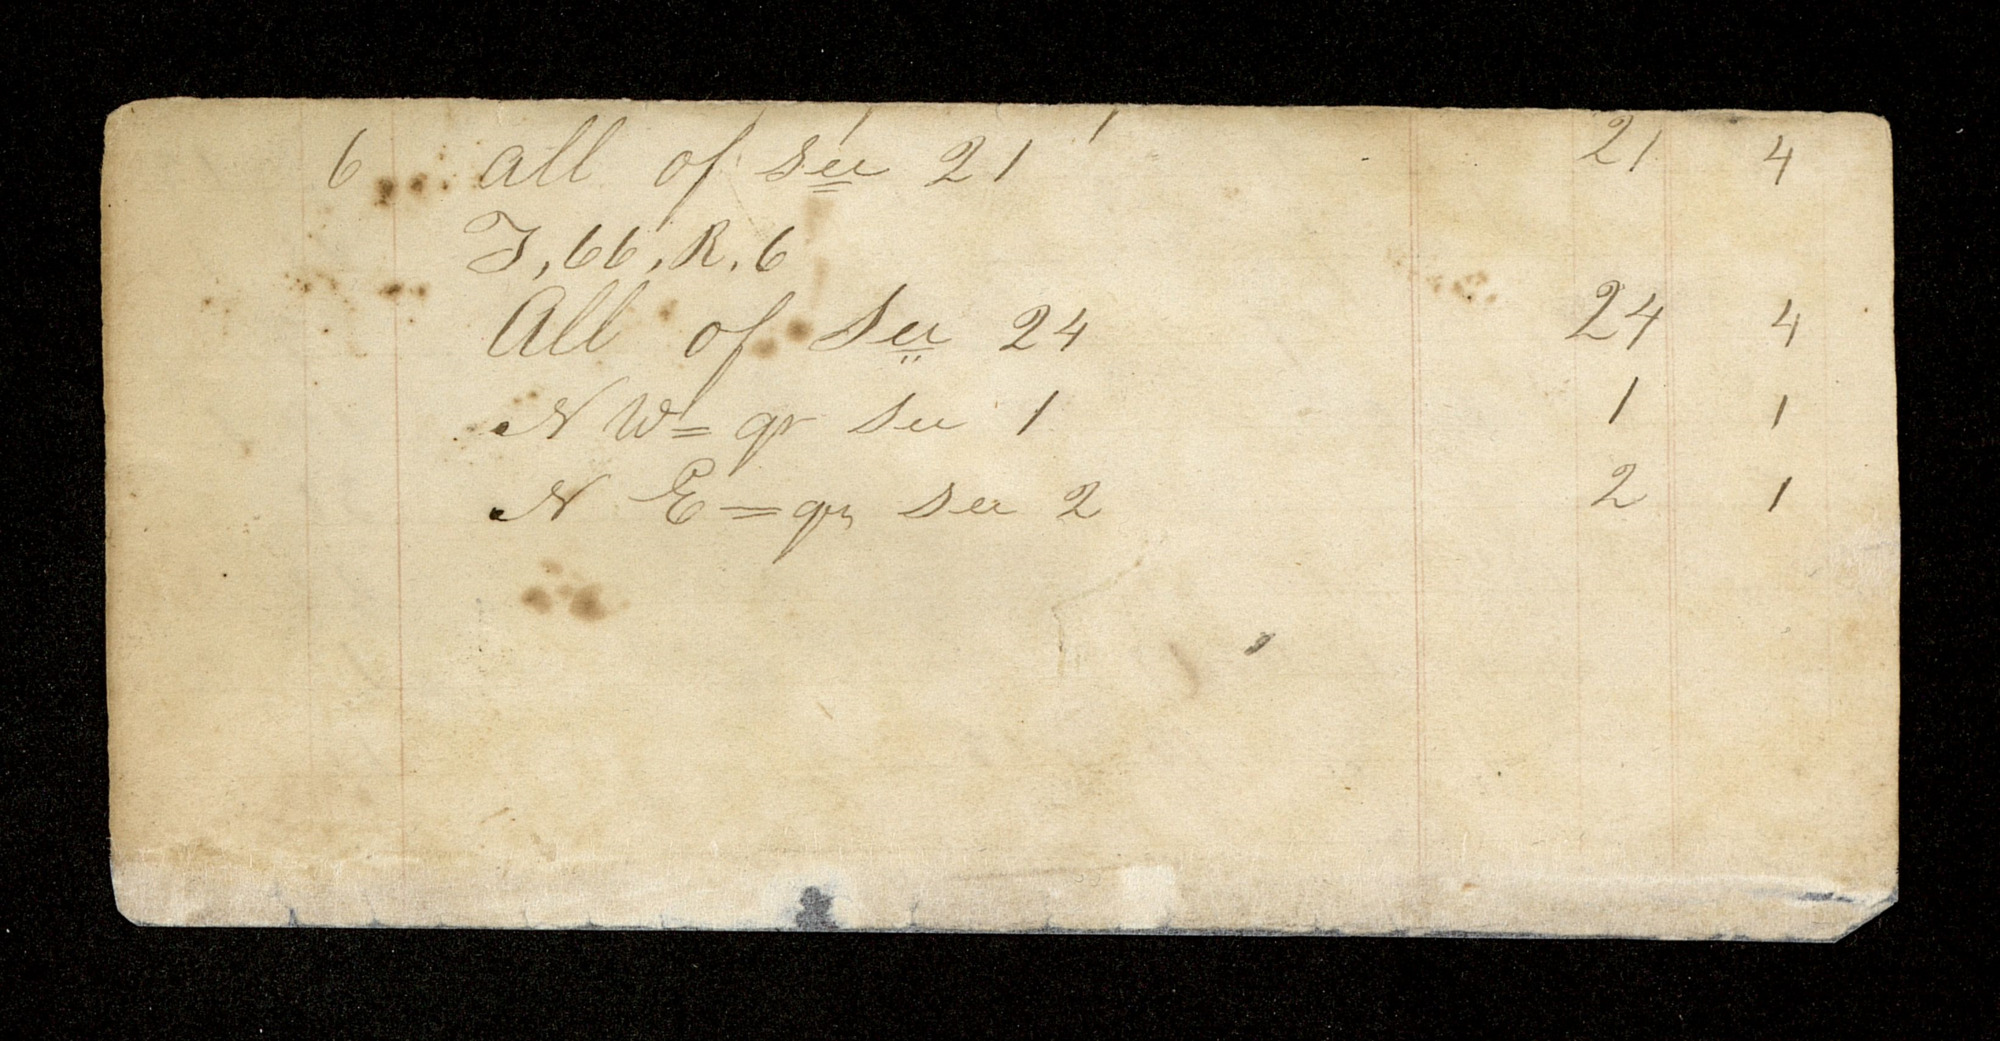 6 all of sec 21 21 4
T, 66, R. 6
All of Sec 24 24 4
N W= qr Sec 1 1 1
N E= qr Sec 2 2 1